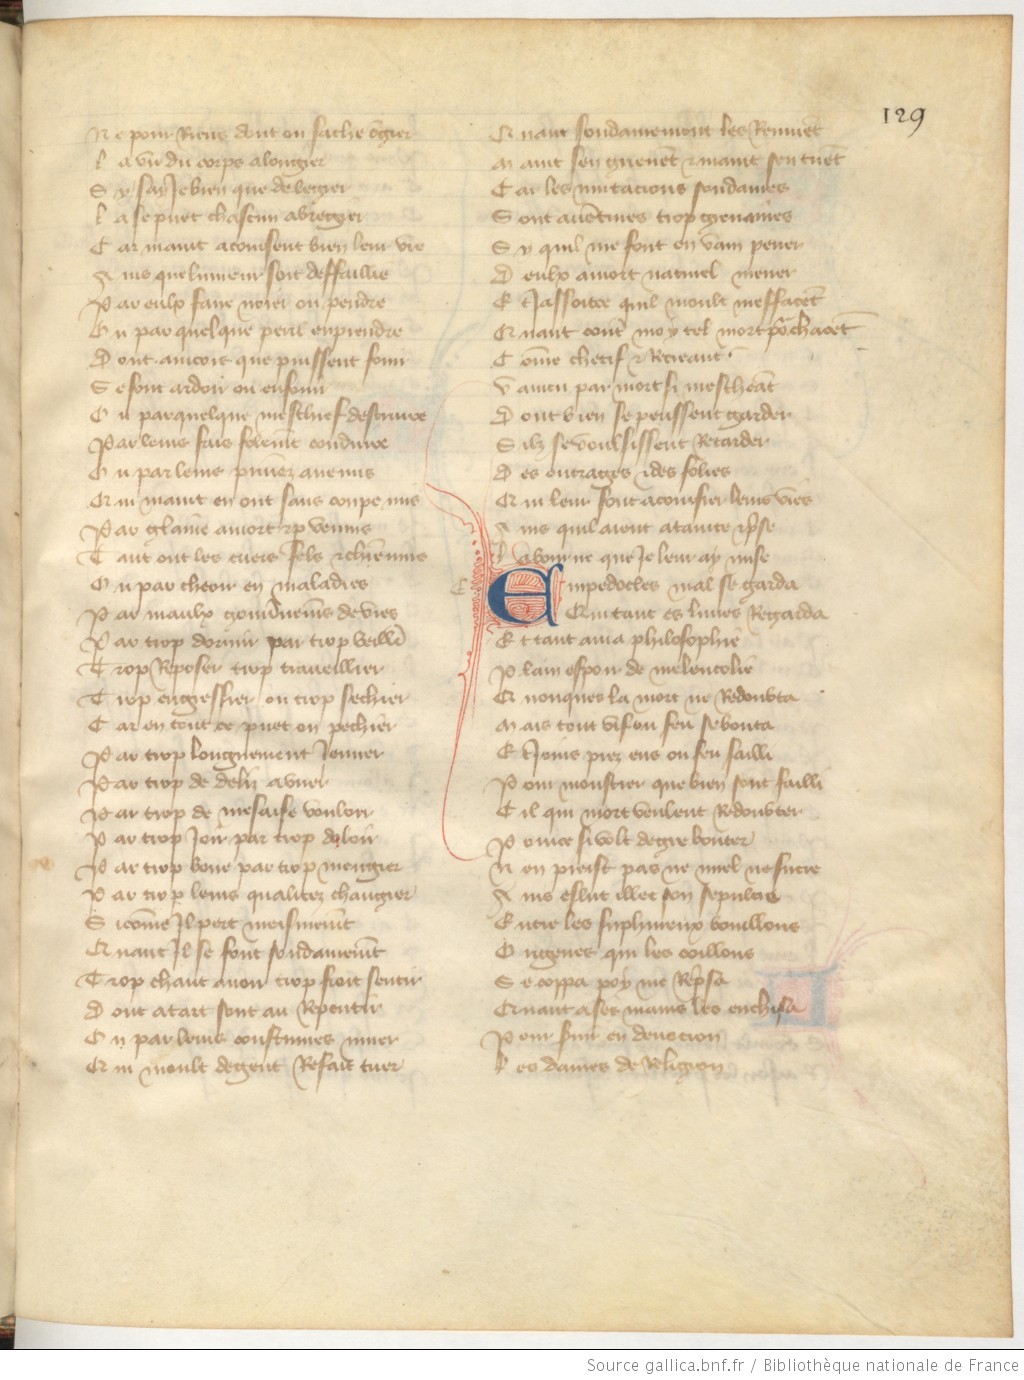 129
N e pour Riens dont on sache Ogier
L a vie du corps alongier
S y say Je bien que de legier
L a se puet chascun abregier
C ar maint acoursent bien leur vie
A ins que lumeur soit deffaillie
P ar eulx faire noier ou pendre
O u par quelque peril enprendre
D ont aincois que puissent fouir
S e font ardoir ou enfouir
O u par quelque meschief destruire
P ar leurs fais folement conduire
O u par leurs privez anemis
Q ui maint en ont sans coupe mis
P ar glaive a mort et par venins
T ant ont les cuers fels et chenins
O u par cheoir en maladies
P ar maulx gouvernemens de vies
P ar trop dormir par trop veillier
T rop Reposer trop traveillier
T rop engressier ou trop sechier
C ar en tout ce puet on pechier
P ar trop longuement Jeuner
P ar trop de deliz avuer
P ar trop de mesaise vouloir
P ar trop Joir par trop doloir
P ar trop boire par trop mengier
P ar trop leurs qualitez changier
S i comme Jl pert meismement
Q uant Jl se font soudainement
T rop chaut avoir trop froit sentir
D ont a tart sont au Repentir
O u par leurs coustumes muer
Q ui moult de gent Refait tuer
Q uant soudainement les Remuent
M aint sen grievent et maint sen tuent
C ar les mutacions soudaines
S ont a nature trop grevaines
S y quil me font en vain pener
D eulx a mort naturel mener
E t Jassoitce quil moult meffacent
Q uant contre moy tel mort prochacent
C omme chetif et Recreant
V aincu par mort si mescheant
D ont bien se peussent garder
S ilz se voulsissent Retarder
D es outrages et des folies
Q ui leur font acoursier leurs vies
A ins quil aient atainte et prise
L a bourne que Je leur ay mise
E mpedocles mal se garda
Q ui tant es livres Regarda
E t tant ama philosophie
P lain espoir de melencolie
Q uonques la mort ne Redoubta
M ais tout vif ou feu se bouta
E t Joins piez ens ou feu sailli
P our monstrer que bien sont failli
C il qui mort veulent Redoubter
P our ce si volt de gre bouter
N en preist pas ne miel ne sucre
A ins eslut illec son sepulcre
E ntre les sulphureux bouillons
O rigenes qui les coillons
S e coppa poy me Reprisa
Q uant a ses mains les enchisa
P our servir en devocion
L es dames de Religion